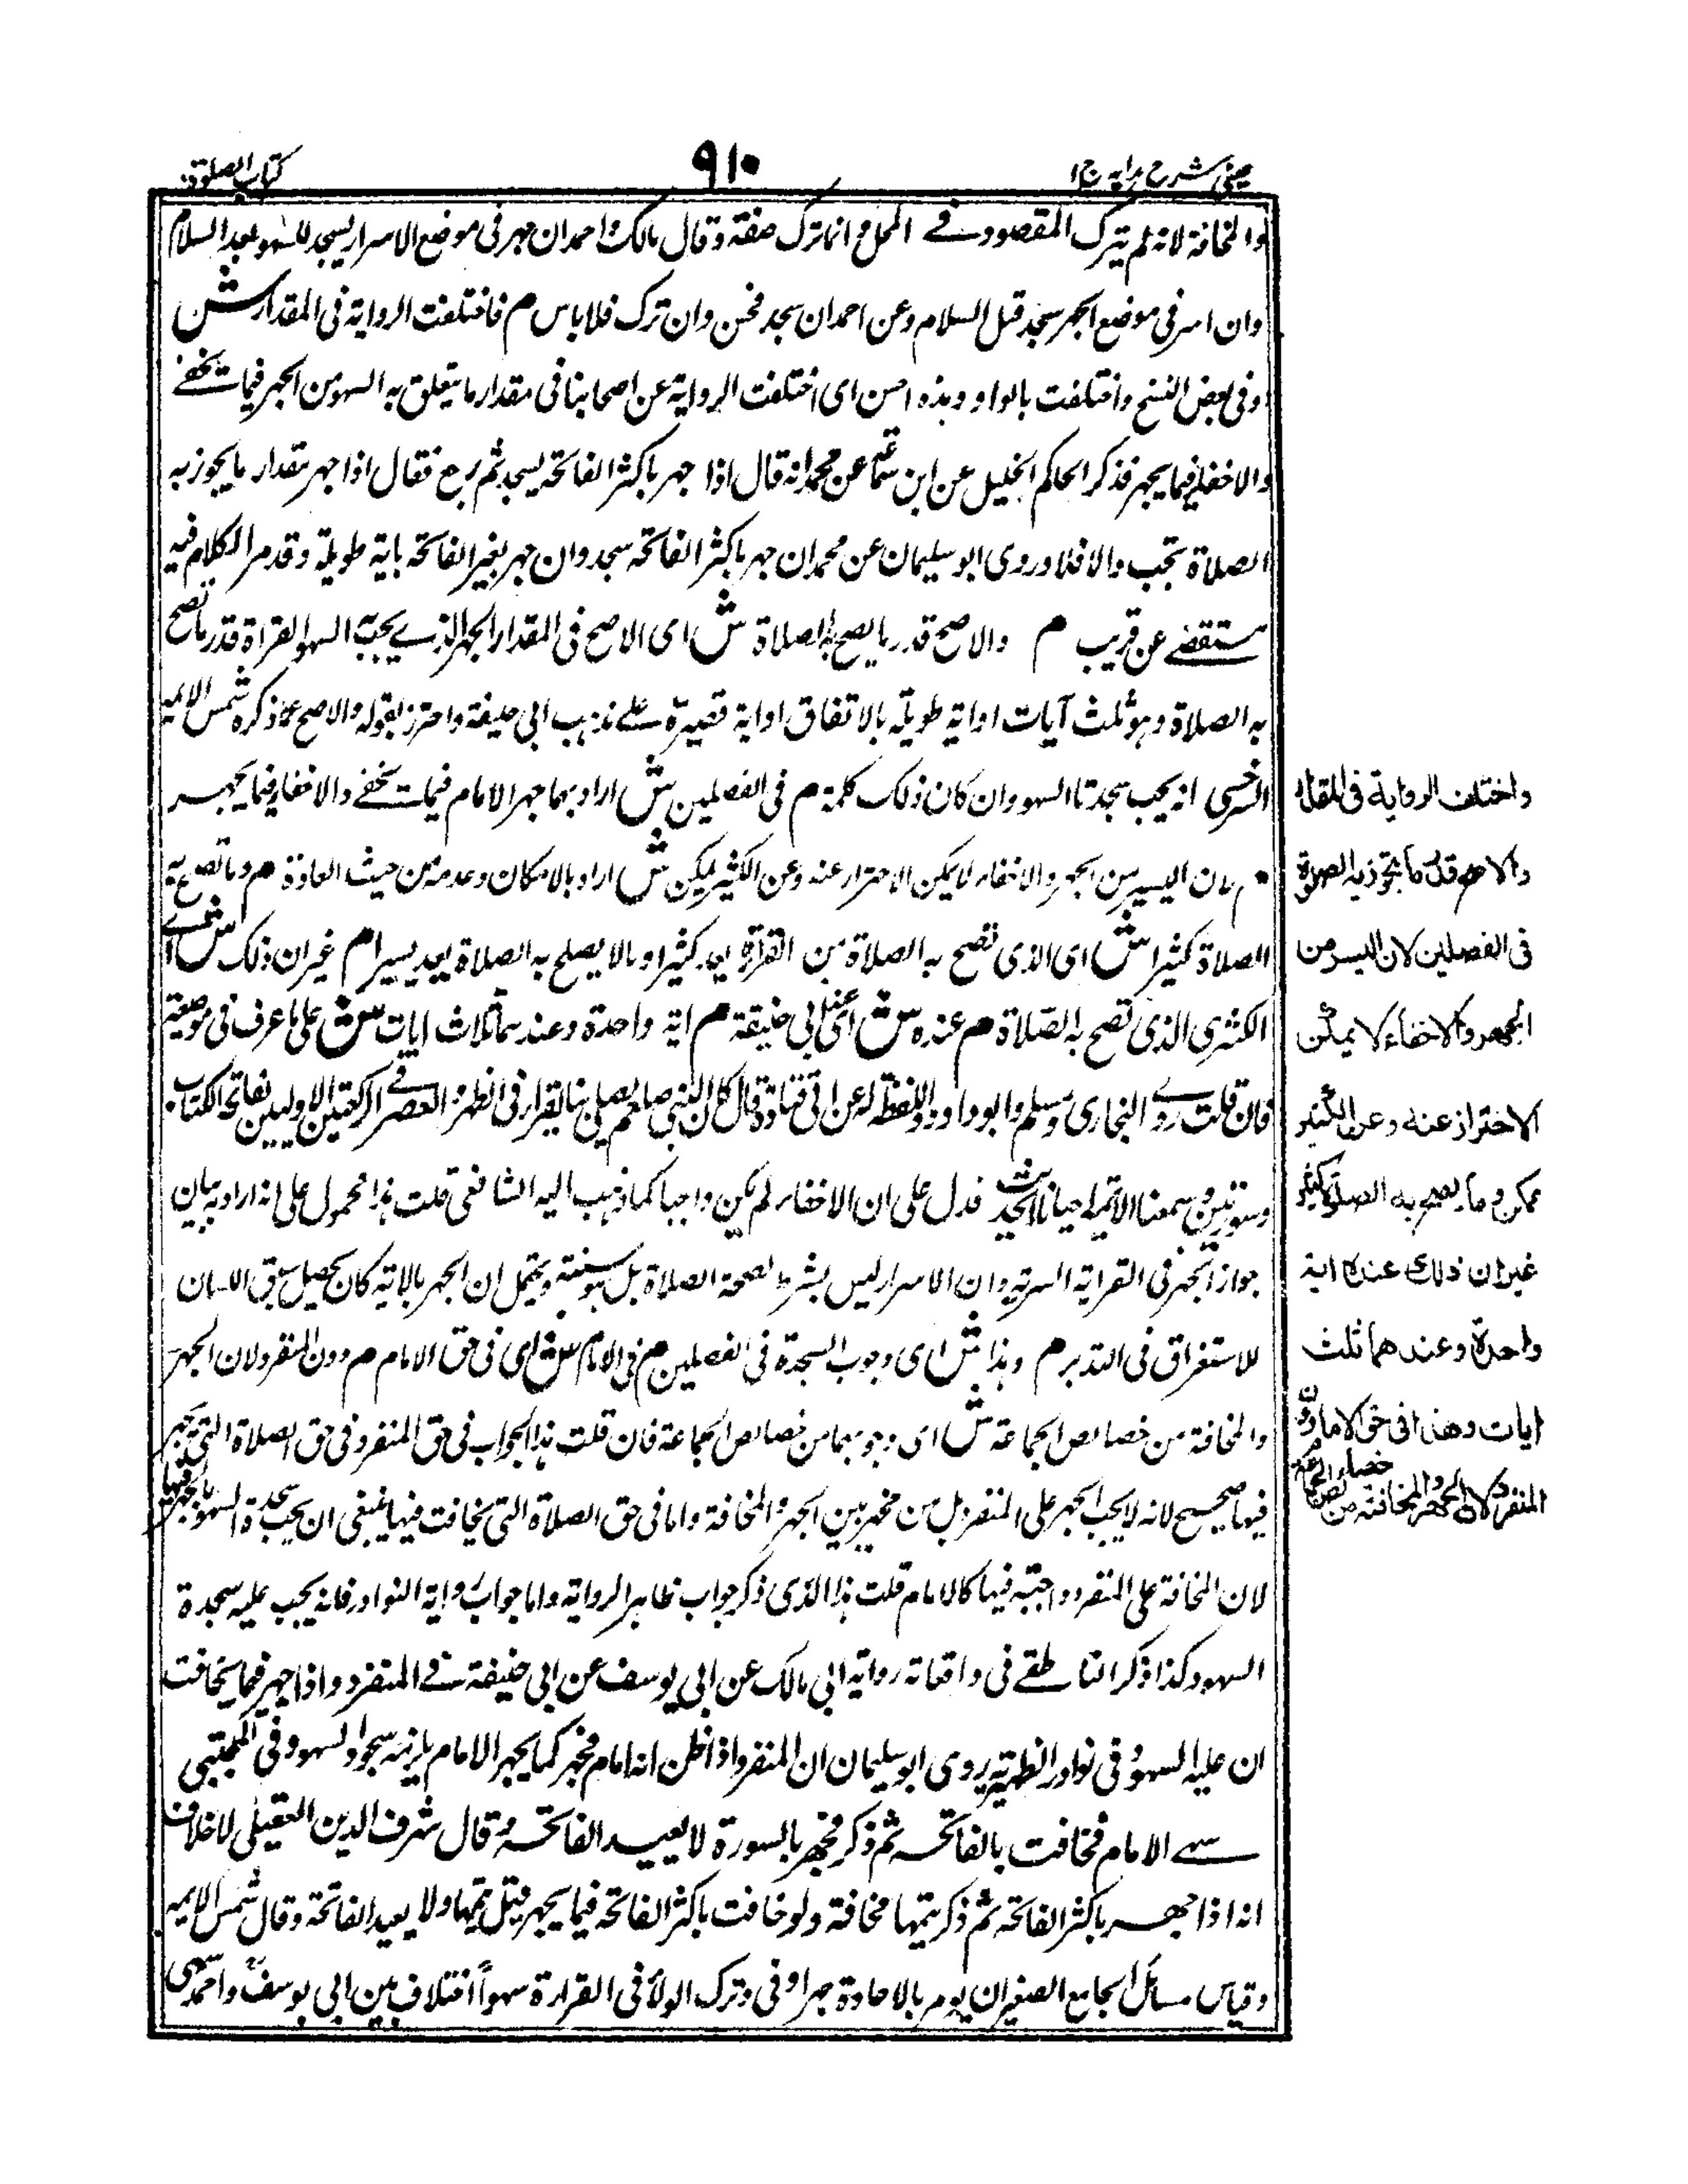 عینی شرح ہدایہ ج ا
٩١٠
کتاب الصلوة
والمخافتة لانه لم يترك المقصود في المحل وانما ترك صفته وقال مالك واحمد ان جهر فى موضع الاسرار يسجد للسهو بعد السلام
وان اسر فى موضع الجهر سجد قبل السلام وعن احمد ان سجد فحسن وان ترك فلا باس م فاختلفت الرواية فى المقدار ش
وفى بعض النسخ واختلفت بالواو وهذه احسن اى اختلفت الرواية عن اصحابنا فى مقدار ما يتعلق به السهو من الجهر فيما يخفے
والاخفاء فيما يجهر فذكر الحاكم الجليل عن ابن سماعة عن محمد انه قال اذا جهر باكثر الفاتحة يسجد ثم رجع فقال اذا جهر بمقدار ما يجوز به
الصلاة تجب والا فلا وروى ابو سليمان عن محمد ان جهر باكثر الفاتحة سجد وان جهر بغير الفاتحة باية طويلة وقد مر الكلام فيه
مستقصے عن قريب م والاصح قدر ما يصح به الصلاة ش اى الاصح فى المقدار الجهر الذے يجب به السهو القراة قدر ما تصح
به الصلاة وهو ثلث آيات او اية طويلة بالاتفاق او اية قصيرة علے مذهب ابى حنيفة واحترز بقوله والاصح عما ذكره شمس الائمه
السرخسى انه يجب سجدتا السهو وان كان ذلك كلمة م فى الفصلين ش اراد بهما جهر الامام فيما يخفے والاخفاء فيما يجهر
م لان اليسير من الجهر والاخفاء لا يمكن الاحتراز عنه وعن الكثير يمكن ش اراد بالامكان وعدمه من حيث العادة م وما تصح به
الصلاة كثيرا ش اى الذى تصح به الصلاة من القراة يعد كثيرا وما لا يصلح به الصلاة يعد يسيرا م غير ان ذلك ش اے
الكثير الذى تصح به الصلاة م عنده ش اى عند ابى حنيفة م اية واحدة وعندهما ثلاث ايات ش على ما عرف فى موضعه
فان قلت روے البخارى ومسلم وابو داود واللفظ له عن ابى قتادة قال كان النبى صلعم يصلى بنا فيقرأ فى الظهر والعصر فے الركعتين الاوليين بفاتحة الكتاب
وسورتين ويسمعنا الاية احيانا الحديث فدل على ان الاخفاء لم يكن واجبا كما ذهب اليه الشافعى قلت هذا محمول على انه اراد به بيان
جواز الجهر فى القراءة السرية وان الاسرار ليس بشرط لصحة الصلاة بل هو سنته ويحتمل ان الجهر بالاية كان يحصل بسبق اللسان
للاستغراق فى التدبر م وهذا ش اى وجوب السجدة فى الفصلين م فى الامام ش اى فى حق الامام م دون المنفرد لان الجهر
والمخافتة من خصائص الجماعة ش اى وجوبهما من خصائص الجماعة فان قلت هذا الجواب فى حق المنفرد فى حق الصلاة التى يجهر
فيها صحيح لانه لا يجب الجهر على المنفرد بل من مخير بين الجهر والمخافتة واما فى حق الصلاة التى يخافت فيها ينبغى ان يجب سجدة السهو بالجهر فيها
لان المخافتة على المنفرد واجبة فيها كالامام قلت هذا الذى ذكر جواب ظاهر الرواية واما جواب رواية النوادر فانه يجب عليه سجدة
السهو وكذا ذكر الناطفے فى واقعاته رواية ابى مالك عن ابى يوسف عن ابى حنيفة فے المنفرد واذا جهر فيما يخافت
ان عليه السهو وفى نوادر الظهيرية روى ابو سليمان ان المنفرد اذا ظن انه امام فجهر كما يجهر الامام يلزمه سجود السهو وفى المجتبى
سہے الامام فخافت بالفاتحة ثم ذكر فجهر بالسورة لا يعيد الفاتحة وقال شرف الدين العقيلى لا خلاف
انه اذا جهر باكثر الفاتحة ثم ذكر يتمها مخافتة ولو خافت باكثر الفاتحة فيما يجهر قيل يتمها ولا يعيد الفاتحة وقال شمس الائمه
وقياس مسائل الجامع الصغير ان يومر بالاعادة جهرا وفى وترك الولاء فى القراءة سهوا اختلاف بين ابى يوسف واحمد
واختلف الرواية فى المقدار
والاصح قدر ما تجوز به الصلوة
فى الفصلين لان اليسير من
الجهر والاخفاء لا يمكن
الاحتراز عنه وعن الكثير
ممكن وما يصح به الصلوة كثير
غير ان ذلك عنده اية
واحدة وعندهما ثلث
ايات وهذا فى حق الامام دون
المنفرد لان الجهر والمخافتة من
خصائص الجماعة